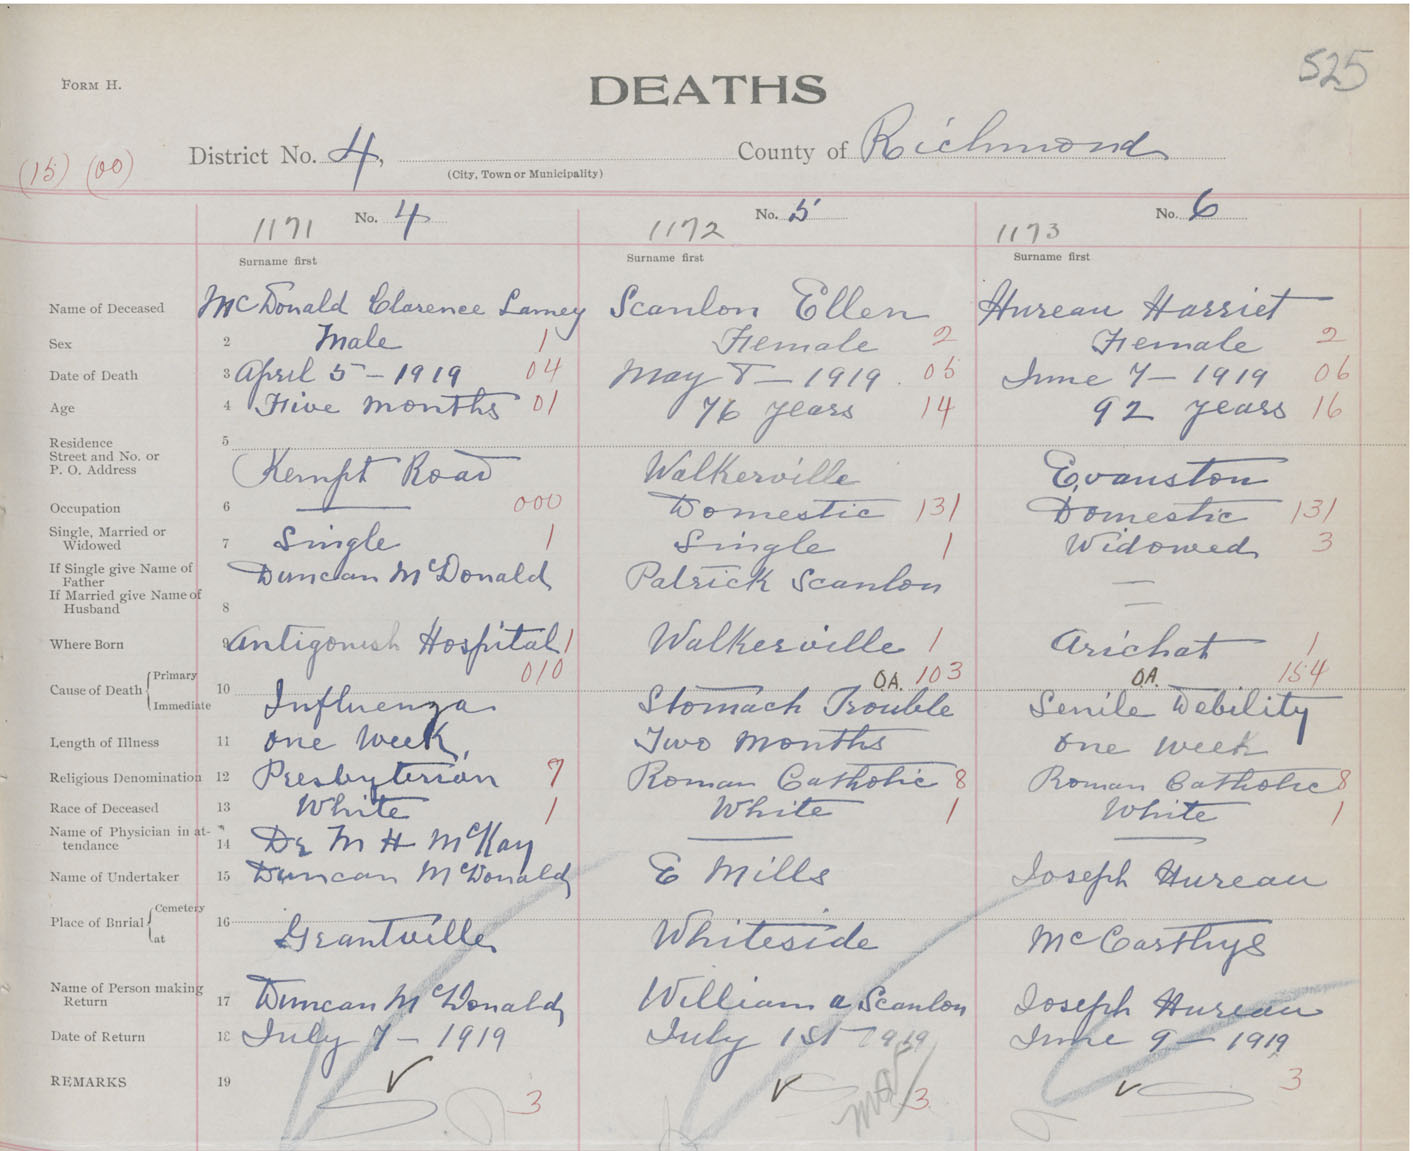 FORM H.
DEATHS
525
(15) (00)
District No. 4, County of Richmond
(City, Town or Municipality)
No. 4 No. 5 No. 6
1171 1172 1173
Surname first Surname first Surname first
Name of Deceased McDonald Clarence Scanlon Ellen Hureau Harriet
Sex 2 Male 1 Female 2 Female 2
Date of Death 3 April 5 - 1919 04 May 8 - 1919 05 June 7 - 1919 06
Age 4 Five months 01 76 years 14 92 years 16
Residence 5
Street and No. or
P. O. Address Kempt Road Walkerville Evanston
Occupation 6 000 Domestic 131 Domestic 131
Single, Married or
Widowed 7 Single 1 Single 1 Widowed 3
If Single give Name of
Father Duncan McDonald Patrick Scanlon —
If Married give Name of
Husband 8 —
Where Born 9 Antigonish Hospital 1 Walkerville 1 Arichat 1
010 O.A. 103 O.A. 154
Cause of Death { Primary
Immediate 10 Influenza Stomach Trouble Senile Debility
Length of Illness 11 One Week, Two Months One Week
Religious Denomination 12 Presbyterian 7 Roman Catholic 8 Roman Catholic 8
Race of Deceased 13 White 1 White 1 White 1
Name of Physician in at-
tendance 14 Dr M H McKay
Name of Undertaker 15 Duncan McDonald E Mills Joseph Hureau
Place of Burial { Cemetery
at 16 Grantville Whiteside McCarthys
Name of Person making
Return 17 Duncan McDonald William A Scanlon Joseph Hureau
Date of Return 18 July 7 - 1919 July 1st 1919 June 9 - 1919
REMARKS 19
3 3 3